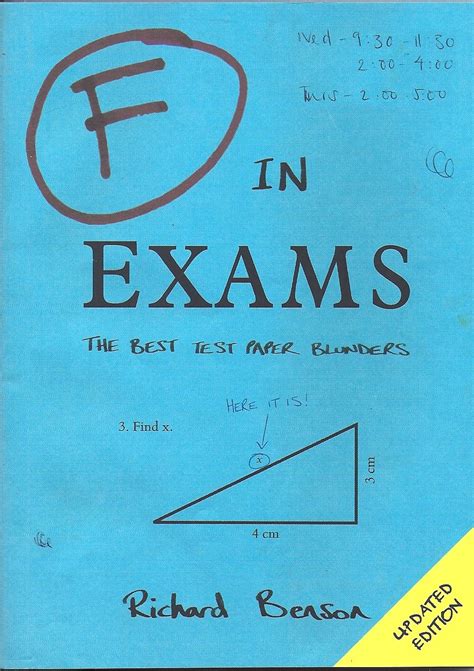 Wed - 9:30 - 11:30
2:00 - 4:00
Thurs - 2:00 - 5:00
F
IN
EXAMS
THE BEST TEST PAPER BLUNDERS
HERE IT IS!
3. Find x.
x
3 cm
4 cm
Richard Benson
UPDATED
EDITION